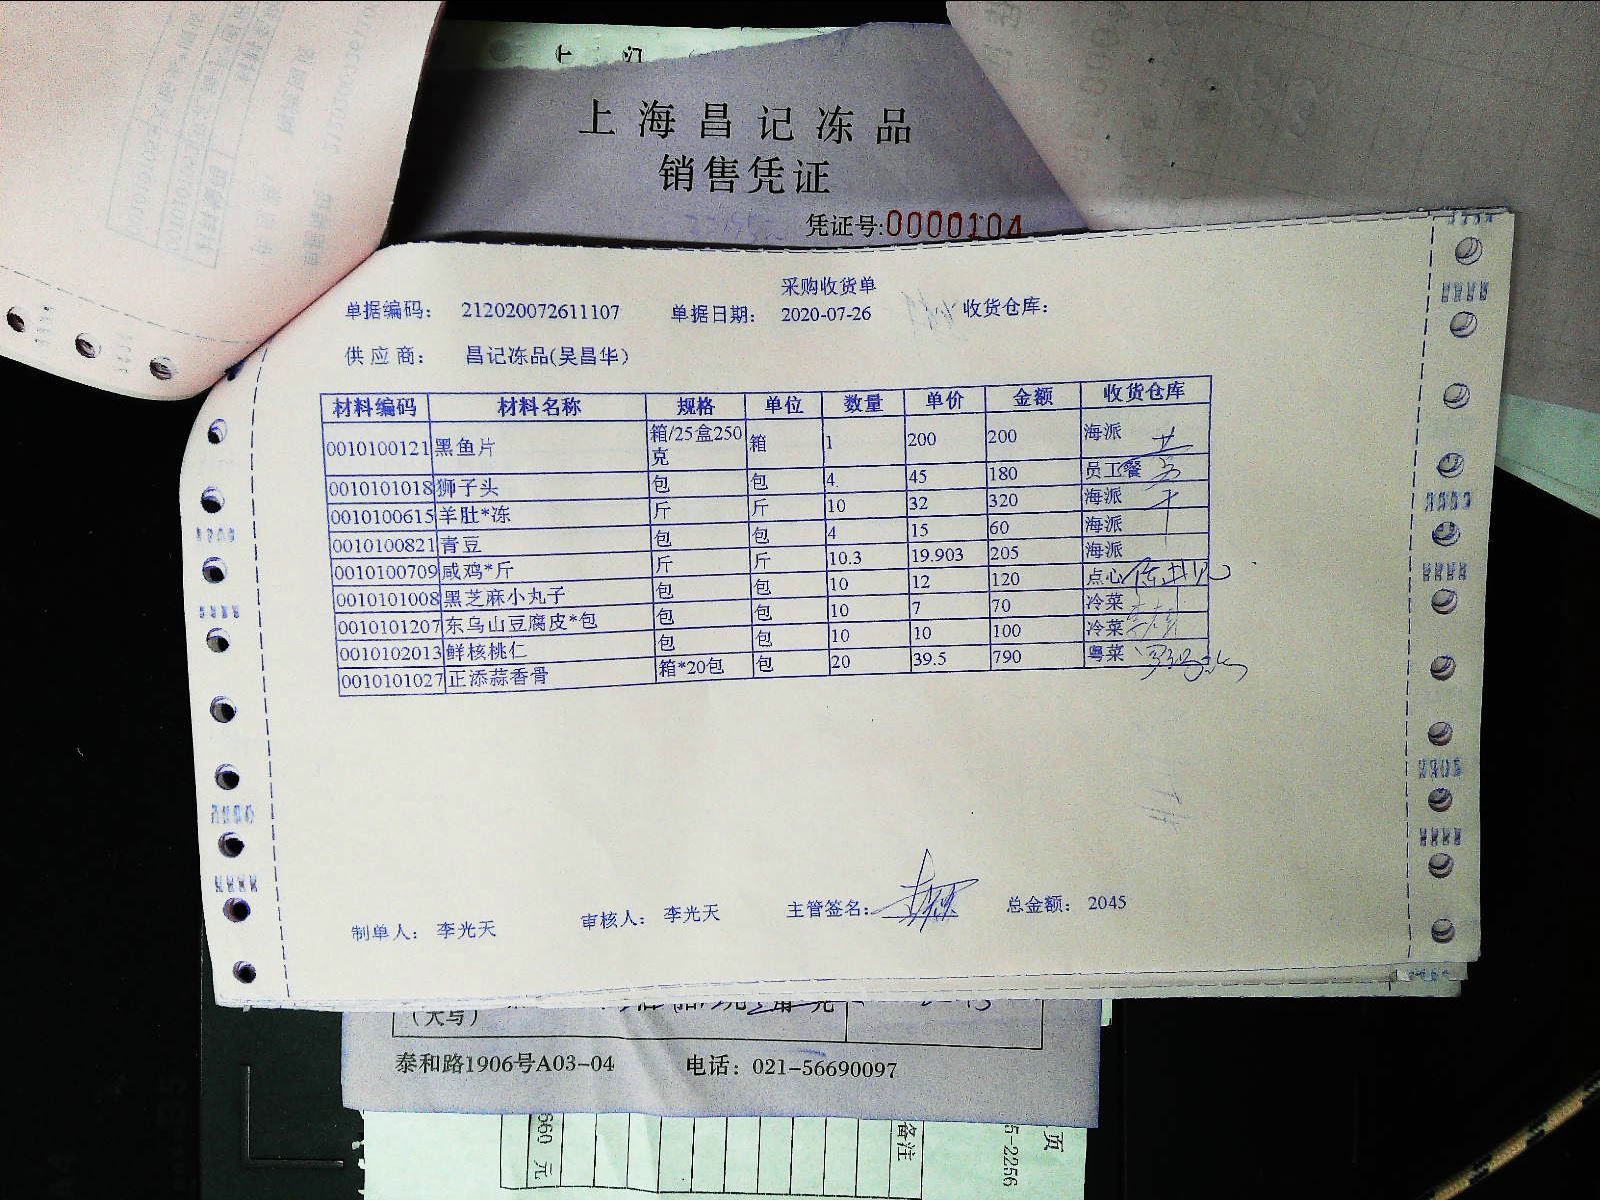 上海昌记冻品
销售凭证
凭证号:0000104
采购收货单
单据编码: 212020072611107 单据日期: 2020-07-26 收货仓库:
供应商: 昌记冻品(吴昌华)
材料编码 材料名称 规格 单位 数量 单价 金额 收货仓库
0010100121 黑鱼片 箱/25盒250克 箱 1 200 200 海派
0010101018 狮子头 包 包 4 45 180 员工餐
0010100615 羊肚*冻 斤 斤 10 32 320 海派
0010100821 青豆 包 包 4 15 60 海派
0010100709 咸鸡*斤 斤 斤 10.3 19.903 205 海派
0010101008 黑芝麻小丸子 包 包 10 12 120 点心
0010101207 东乌山豆腐皮*包 包 包 10 7 70 冷菜
0010102013 鲜核桃仁 包 包 10 10 100 冷菜
0010101027 正添蒜香骨 箱*20包 包 20 39.5 790 粤菜
制单人: 李光天 审核人: 李光天 主管签名: 总金额: 2045
(大写)
泰和路1906号A03-04 电话: 021-56690097
660 元 备注 5-2256 页